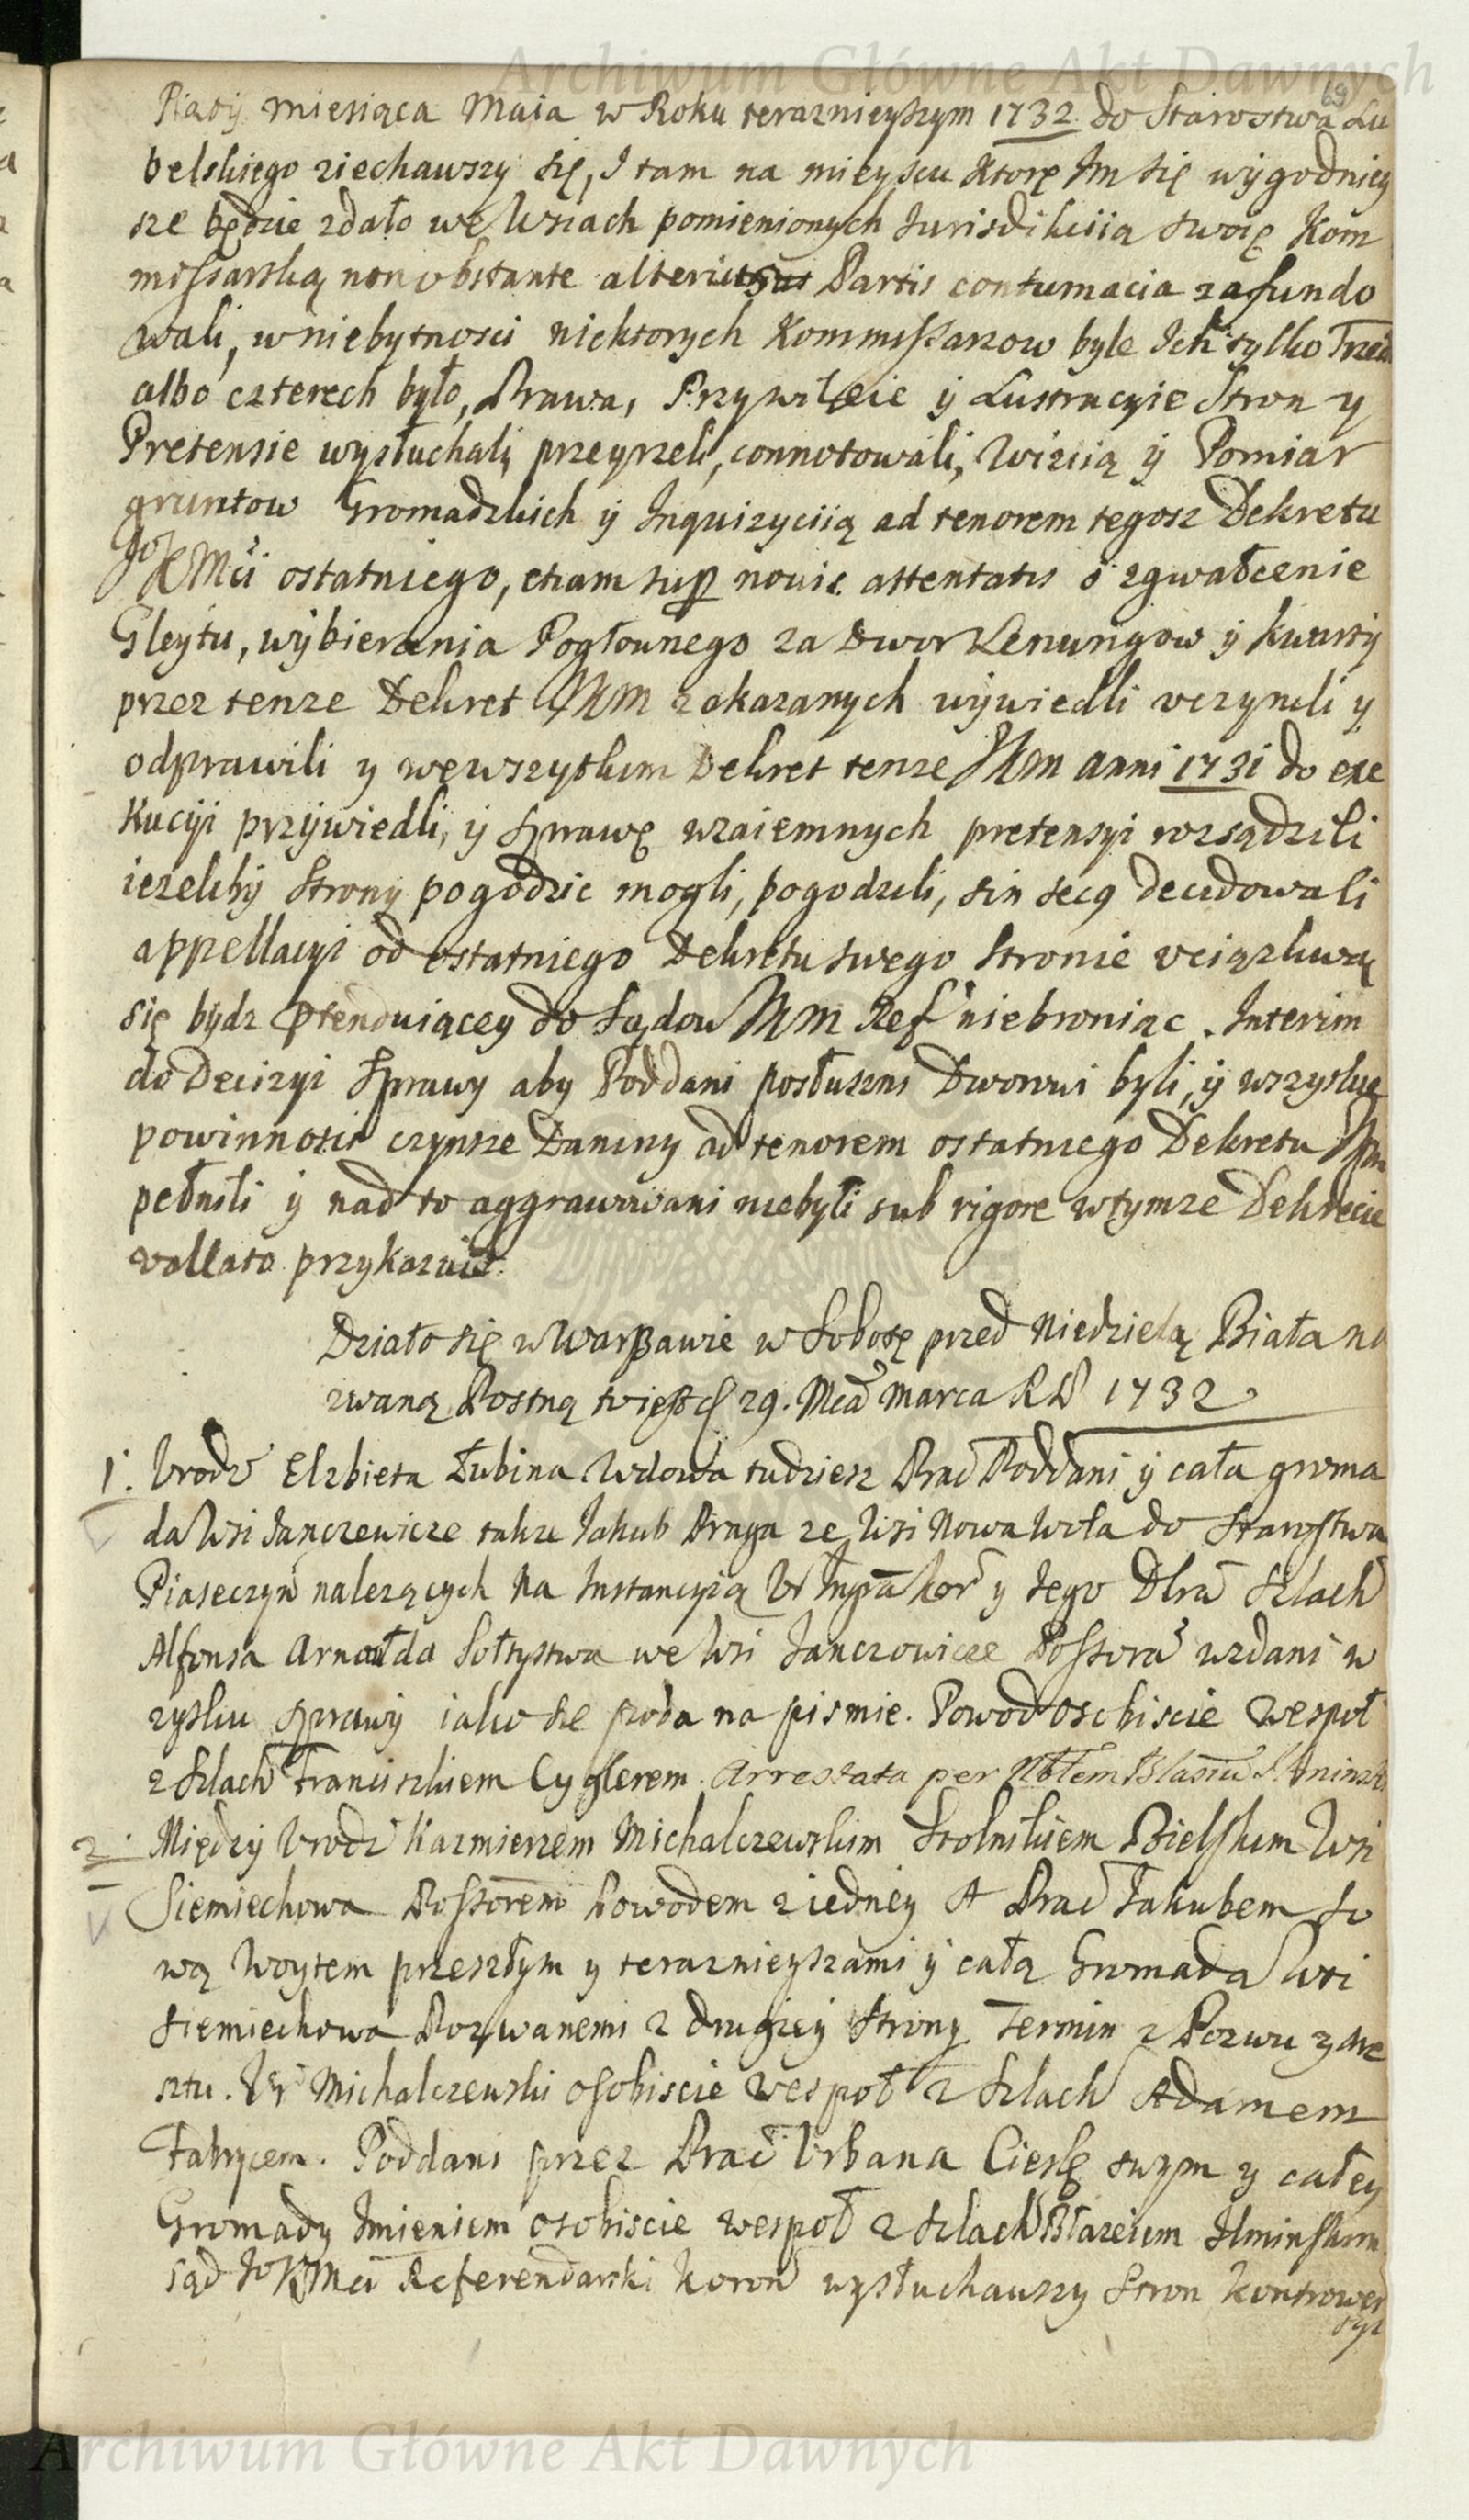 Archiwum Główne Akt Dawnych
69
Piąty miesiąca Maia w Roku teraznieyszym 1732 do Starostwa Lu
belskiego ziechawszy się, I tam na mieyscu ktore Im się wygodniey
sze będzie zdało we Wsiach pomienionych Jurisdikciią swoię Kom
missarską non obstante alterius Partis contumacia zafundo
wali, w niebytnosci niektorych Kommissarzow byle Ich tylko Trzech
albo czterech było, Prawa, Przywileie ÿ Lustracyie Stron y
Pretensie wysłuchali przeyrzeli, connotowali, Wiziią ÿ Pomiar
gruntow Gromadzkich ÿ Inquizyciią ad tenorem tegosz Dekretu
Jo KMci ostatniego, etiam sup novis attentatis o zgwałcenie
Gleytu, wybierania Pogłownego za Dwor Lenungow ÿ Kwarty
przez tenze Dekret JKM zakazanych wywiedli vczynili y
odprawili y wewszytkim Dekret tenze JKM anni 1731 do exe
kucyi przywiedli, ÿ Sprawę wzaiemnych pretensyi rozsądzili
iezeliby Strony pogodzic mogli, pogodzili, sin secq decidowali
appellacyi od ostatniego Dekretu swego Stronie vciązliwą
się bydz Ptenduiącey do Sądow JKM Ref niebroniąc. Interim
do Decizyi Sprawy aby Poddani posłuszni Dworowi byli, ÿ wszytkie
powinnosci czynsze Daniny ad tenorem ostatniego Dekretu JKM
pełnili ÿ nad to aggrawowani niebyli sub rigore wtymze Dekrecie
vallato przykazuie.
Działo się w Warszawie w Sobotę przed Niedzielą Biała na
zwaną Postną 29. Mca Marca RP 1732
1. Vrodz Elzbieta Łubina Wdowa tudziesz Prac Poddani ÿ cała groma
da Wsi Janczewicze takze Jakub Praga ze Wsi Nowa Wola do Starostwa
Piaseczyn nalezących Na Instancyią Vr Inspa Kor y Jego Dlra Szlach
Alfonsa Arnolda Sołtystwa we Wsi Janczowicze Possora wzdani w
zysku Sprawy iako sie poda na pismie. Powod osobiscie wespoł
z Szlach Franciszkiem Cyglerem. Arrestata per Nblem
2. Między Vrodz Kazmierzem Michalczewskim Stolnikiem Bielskim Wsi
Siemiechowa Possorem Powodem z iedney A Prac Jakubem So
wą Woytem przeszłym y teraznieyszami ÿ całą Gromada Wsi
Siemiechowa Pozwanemi z drugiey Strony Termin z Pozwu y Are
sztu. Vr Michalczewski osobiscie wespoł z Szlach Adamem
Fabrycem. Poddani przez Prac Vrbana Cieslę swym y całey
Gromady Imieniem osobiscie wespoł z Szlach Błazeiem Ilminskim
Sąd Jo KMci Referendarski Koron wysłuchawszy Stron Kontrower
syi
Archiwum Główne Akt Dawnych